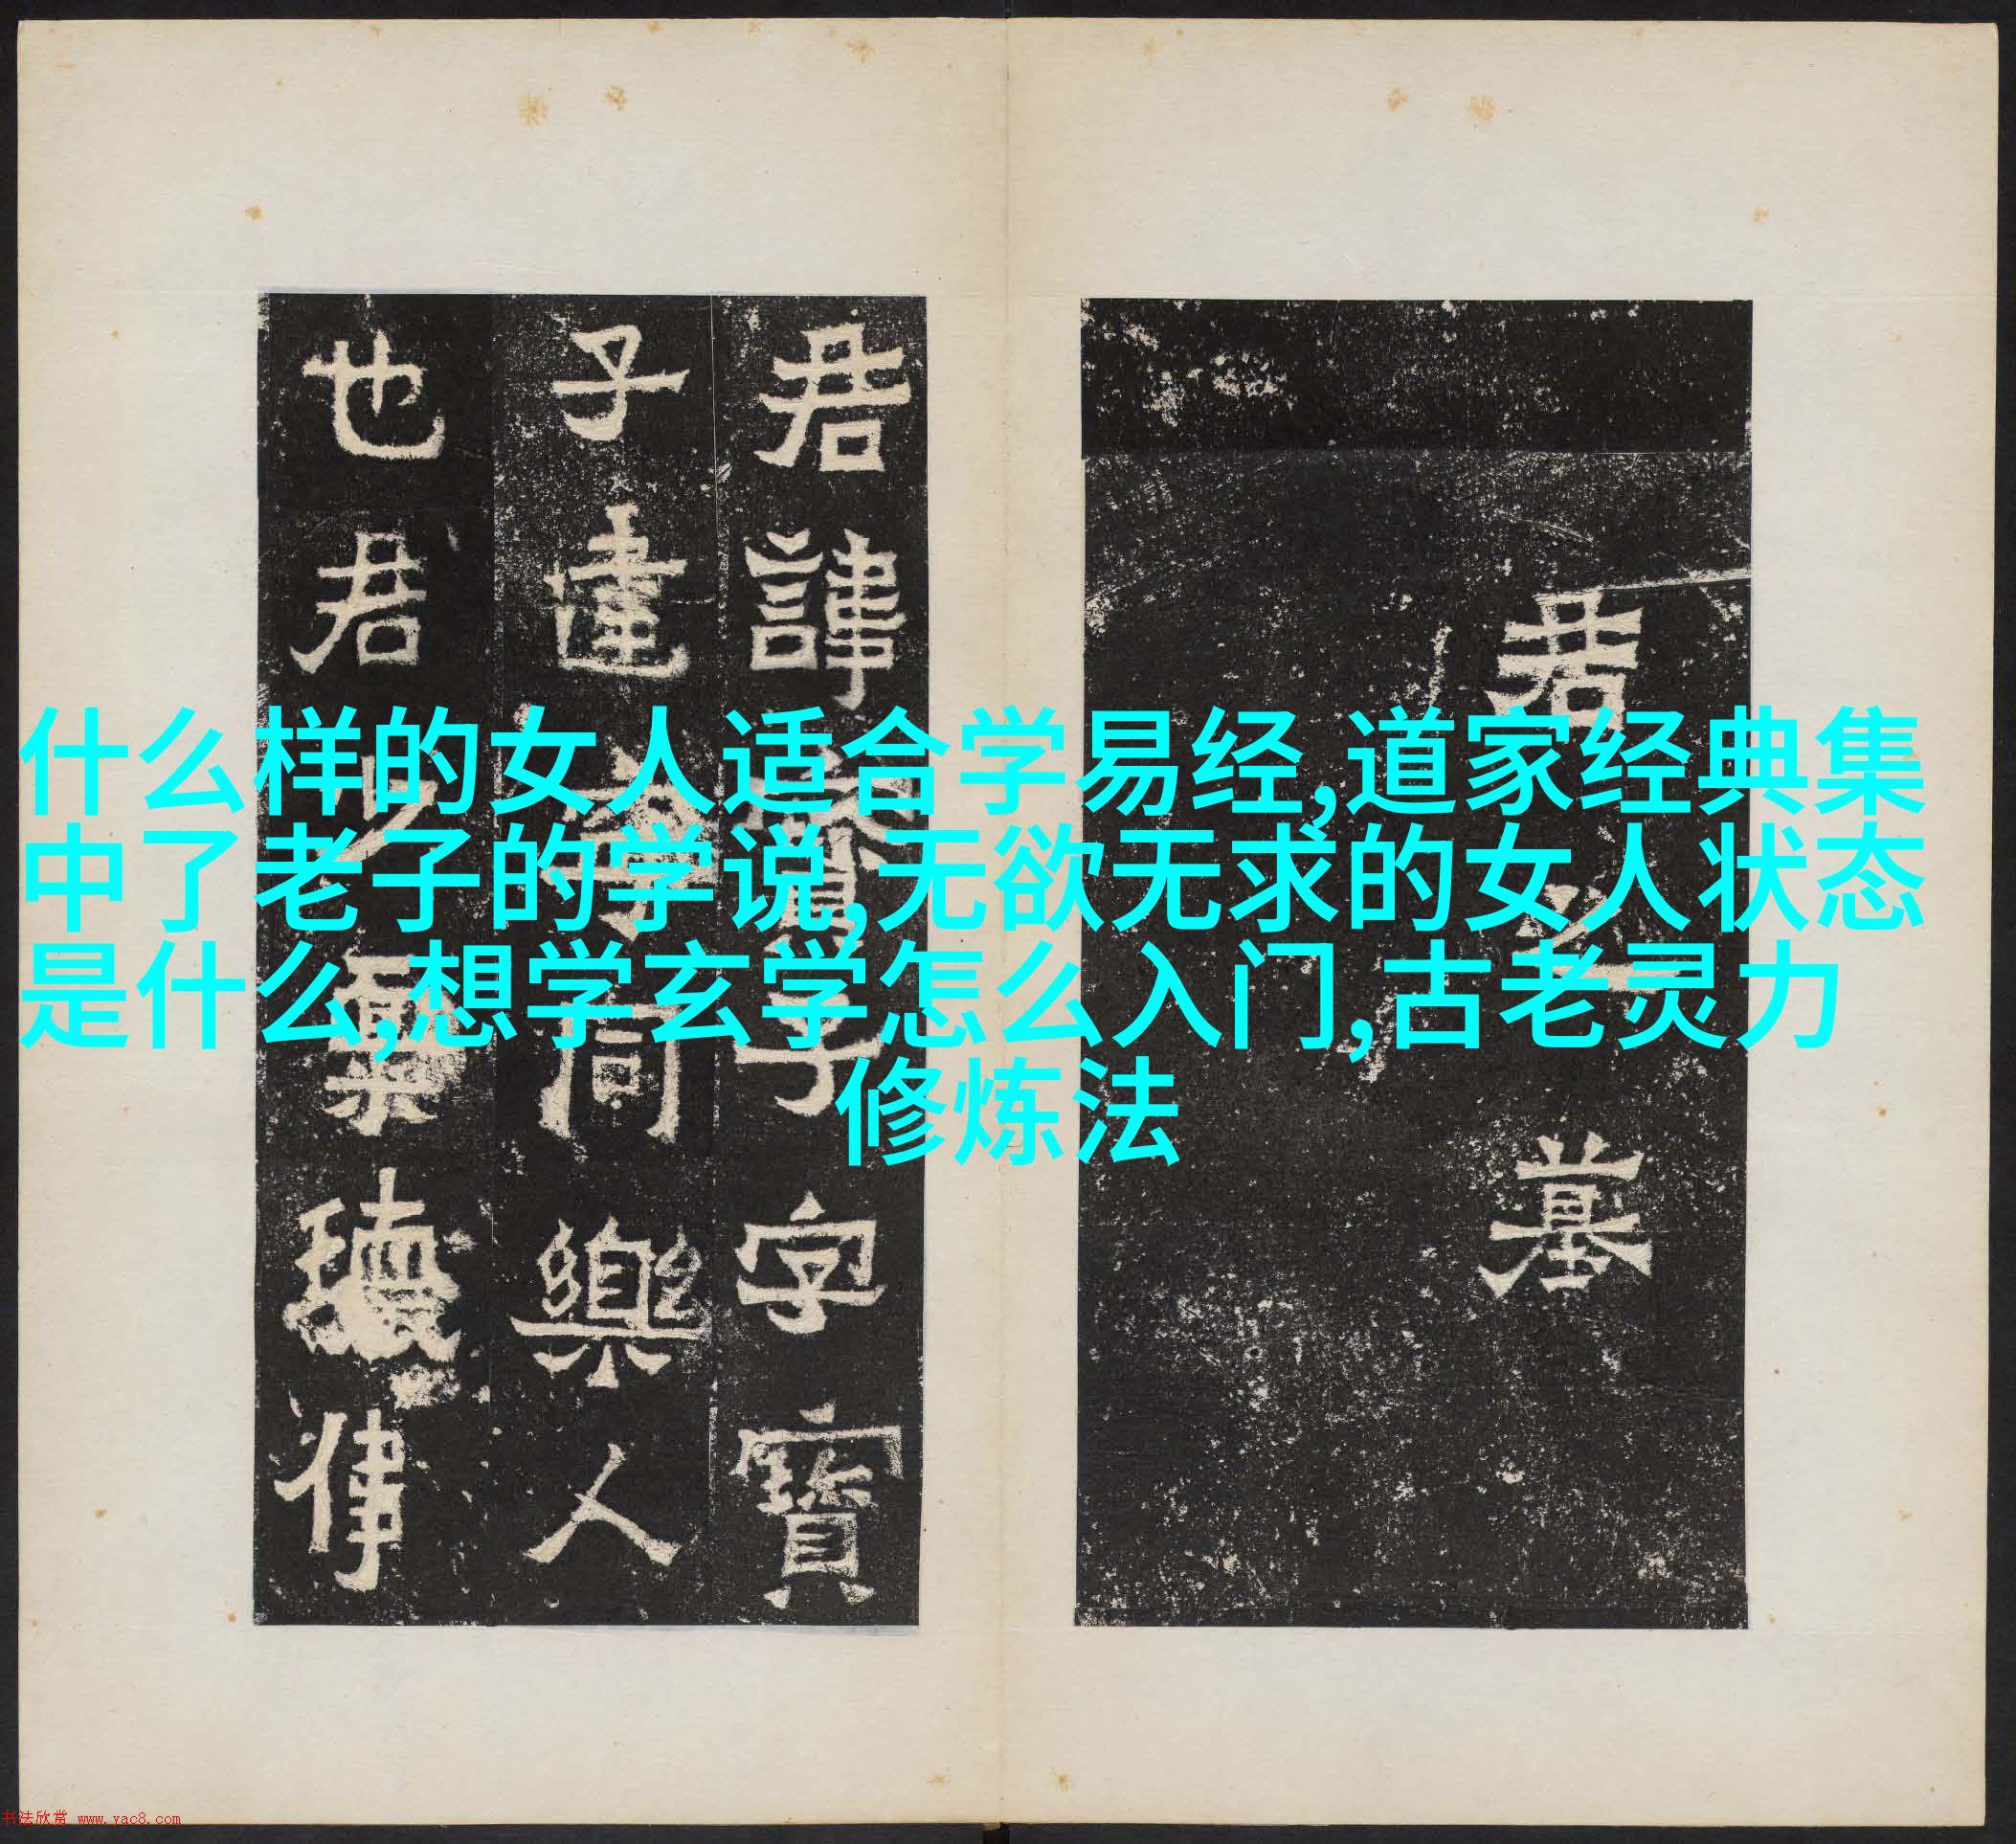 什么样的女人适合学易经,道家经典集
中了老子的学说,无欲无求的女人状态
是什么,想学玄学怎么入门,古老灵力
修炼法
君之墓
君諱寶子字寶
子建寧同樂人
也君少稟瓌偉
书法欣赏 www.yac8.com